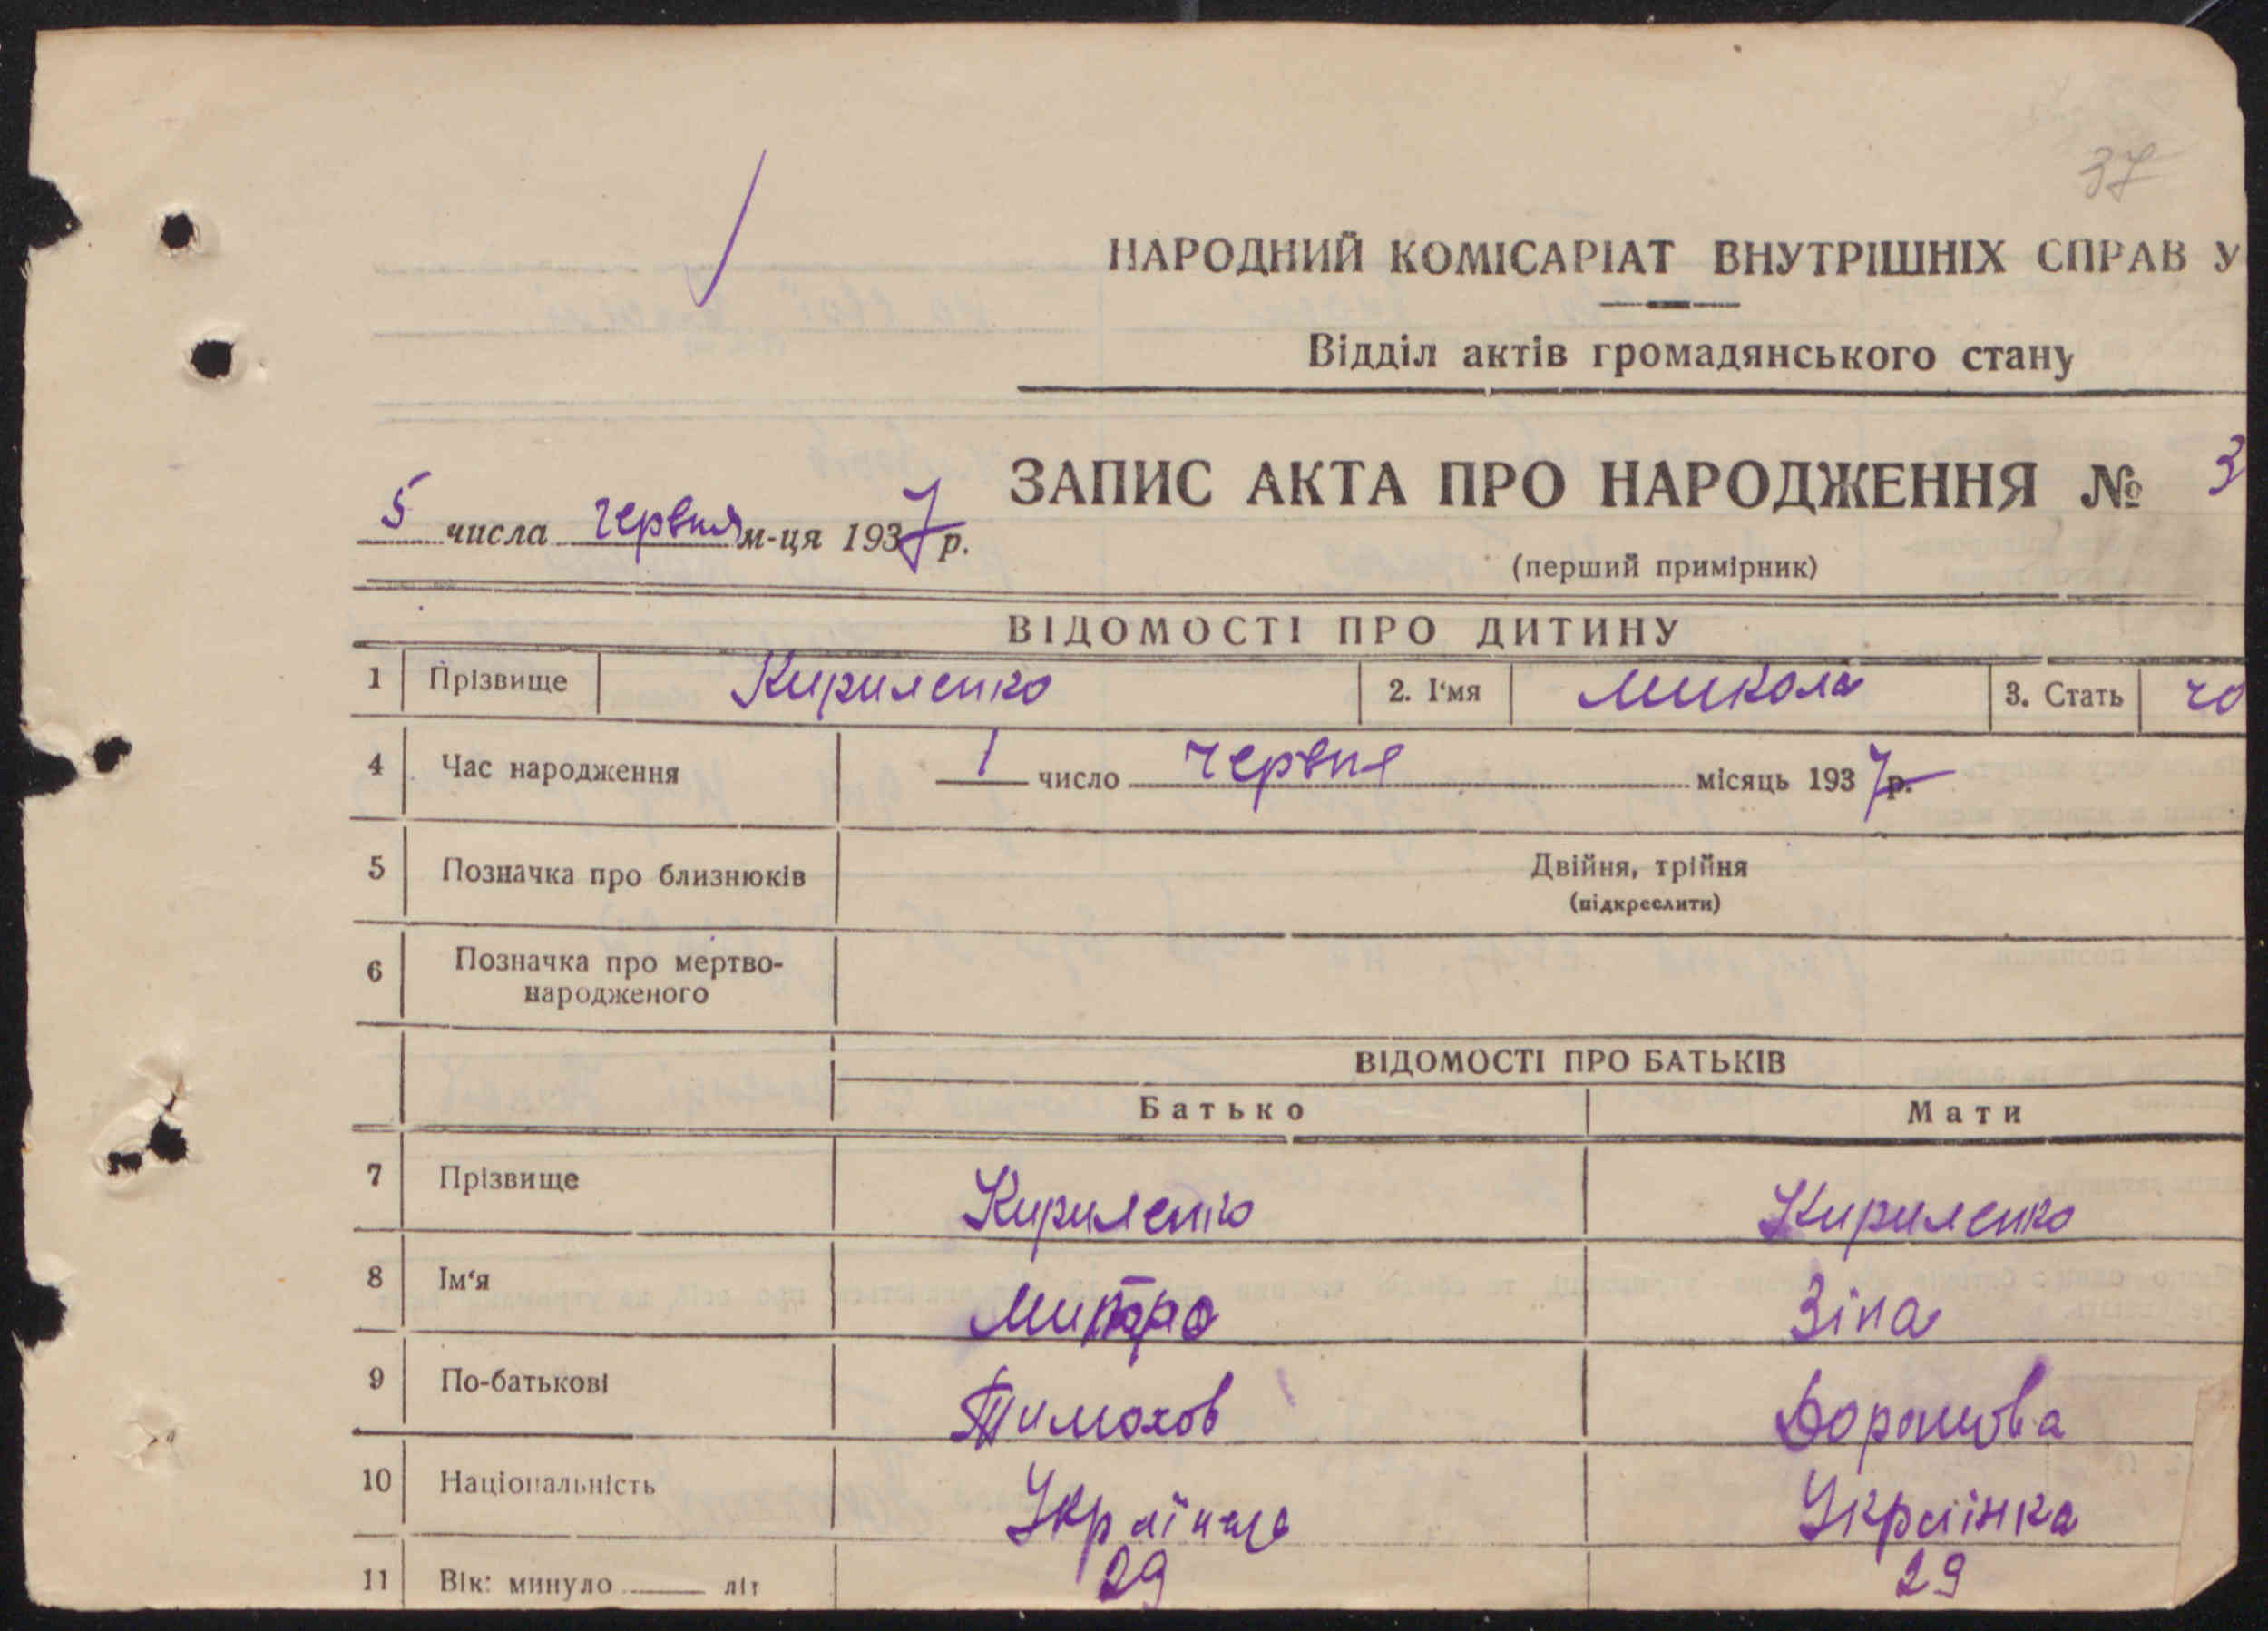 37
НАРОДНИЙ КОМІСАРІАТ ВНУТРІШНІХ СПРАВ У
Відділ актів громадянського стану
ЗАПИС АКТА ПРО НАРОДЖЕННЯ № 3
5 числа червня м-ця 1937 р.
(перший примірник)
ВІДОМОСТІ ПРО ДИТИНУ
1 Прізвище Кириленко 2. І'мя Микола 3. Стать чо
4 Час народження 1 число червня місяць 1937 р.
5 Позначка про близнюків Двійня, трійня
(підкреслити)
6 Позначка про мертво-
народженого
ВІДОМОСТІ ПРО БАТЬКІВ
Батько Мати
7 Прізвище Кириленко Кириленко
8 Ім'я Митро Зіна
9 По-батькові Тимохов
10 Національність Українец Українка
11 Вік: минуло літ 29 29